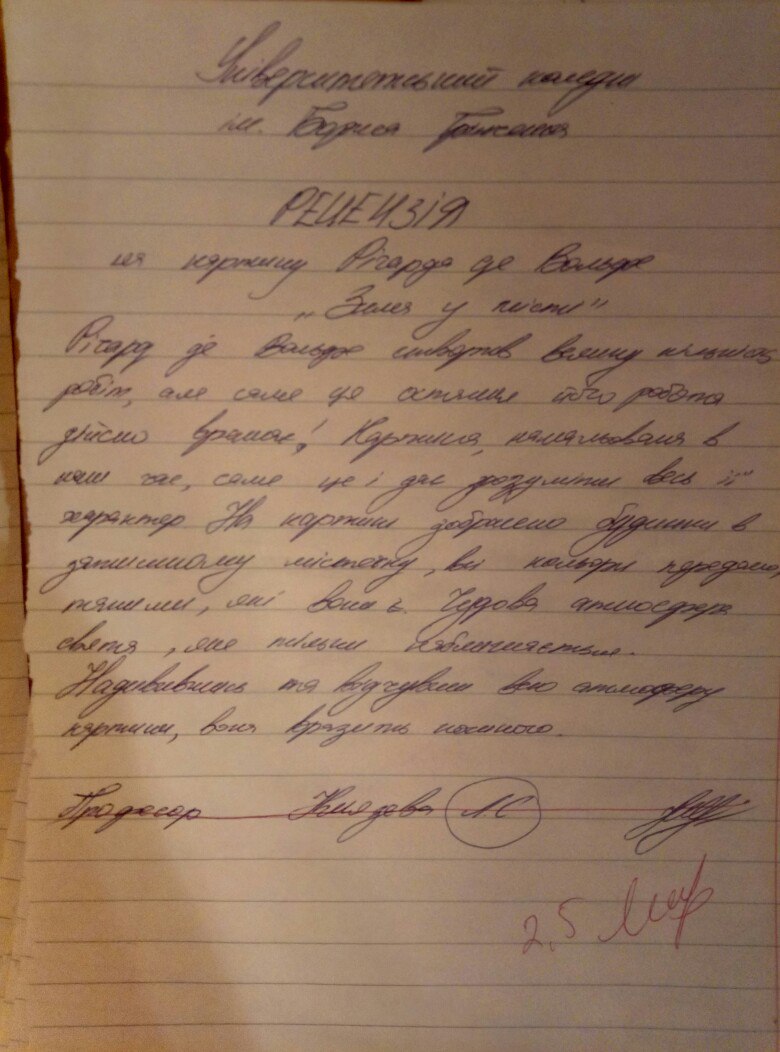 Університетський коледж
ім. Бориса Грінченка
РЕЦЕНЗІЯ
на картину Річарда де Вольфе
„Зима у місті"
Річард де Вольфе створив велику кількість
робіт, але саме ця остання його робота
дійсно вражає! Картина, намальована в
наш час, саме це і дає зрозуміти весь її
характер На картині зображено будинки в
затишному містечку, всі кольори передано,
такими, які вони є. Чудова атмосфера
свята, яке тільки наближається.
Надивившись та відчувши всю атмосферу
картини, вона вразить кожного.
Професор Князева ЛС
2,5